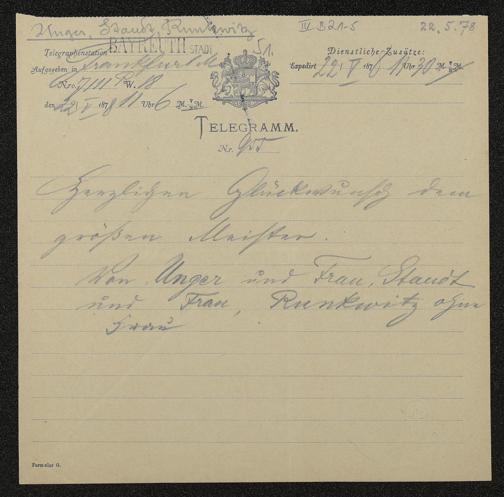 Unger, Staudt Runkwitz
IV B 21-5
22.5.78
51.
Telegraphenstation BAYREUTH STADT
Dienstliche-Zusätze:
Aufgegeben in Frankfurt M
Expedirt 22/V 1878 11 Uhr 30 M.
No. W. 18
den 22/V 1878 11 Uhr 6 M. M.
TELEGRAMM.
Nr. 955
Herzlichen Glückwunsch dem
größen Meister.
Von Unger und Frau, Staudt
und Frau, Runkwitz ohne
Frau
Formular G.